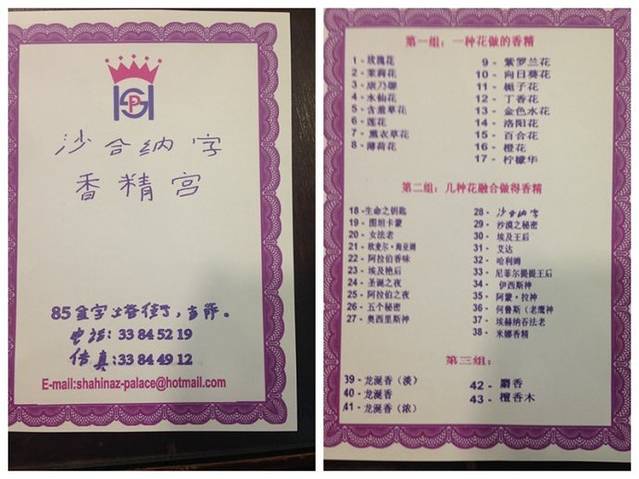 SHP
沙合纳字
香精宫
85金字塔街,吉萨。
电话:33 84 52 19
传真:33 84 49 12
E-mail:shahinaz-palace@hotmail.com
第一组:一种花做的香精
1 - 玫瑰花
2 - 茉莉花
3 - 康乃馨
4 - 水仙花
5 - 含薰草花
6 - 莲花
7 - 薰衣草花
8 - 薄荷花
9 - 紫罗兰花
10 - 向日葵花
11 - 栀子花
12 - 丁香花
13 - 金色水花
14 - 洛阳花
15 - 百合花
16 - 橙花
17 - 柠檬华
第二组:几种花融合做得香精
18 -生命之钥匙
19 - 图坦卡蒙
20 - 女法老
21 - 欧麦尔·海亚姆
22 - 阿拉伯香味
23 - 埃及艳后
24 - 圣诞之夜
25 - 阿拉伯之夜
26 - 五个秘密
27 - 奥西里斯神
28 - 沙合纳字
29 - 沙漠之秘密
30 - 埃及王后
31 - 艾达
32 - 哈利姆
33 - 尼菲尔提提王后
34 - 伊西斯神
35 - 阿蒙·拉神
36 - 何鲁斯(老鹰神
37 - 埃赫纳吞法老
38 - 米娜香精
第三组:
39 - 龙涎香(淡)
40 - 龙涎香
41 - 龙涎香(浓)
42 - 麝香
43 - 檀香木